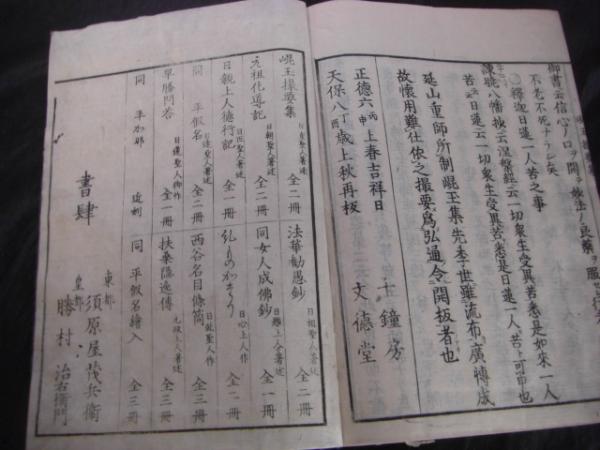 御書云信心ノ口ヲ開テ妙法ノ良薬ヲ服セハ
不老不死ナラン矣
○釋迦日蓮一人苦之事
諫曉八幡抄云涅槃經云一切衆生受異苦悉是如來一人
苦云日蓮云一切衆生受異苦悉是日蓮一人苦ト可申也
延山重師所制崐玉集先李世雖流布廣博成
故懐用難仕依之撮要為弘通令開板者也
正德六丙申上春吉祥日 十鐘房
天保八丁酉歳上秋再板 文德堂
崐玉撮要集 全二冊
元祖化導記 日朝聖人著述 全二冊
日親上人德行記 全一冊
同 平假名 全二冊
早勝問答 日蓮聖人御作 全一冊
同 平かな 近刻
法華勸愚鈔 日相聖人著述 全二冊
同女人成佛鈔 全一冊
日心上人作 全一冊
西谷名目條箇 全三冊
扶桑隱逸傳 元政上人著述 全三冊
同 平假名繪入 全三冊
書肆
東都 須原屋茂兵衛
皇都 勝村治右衛門